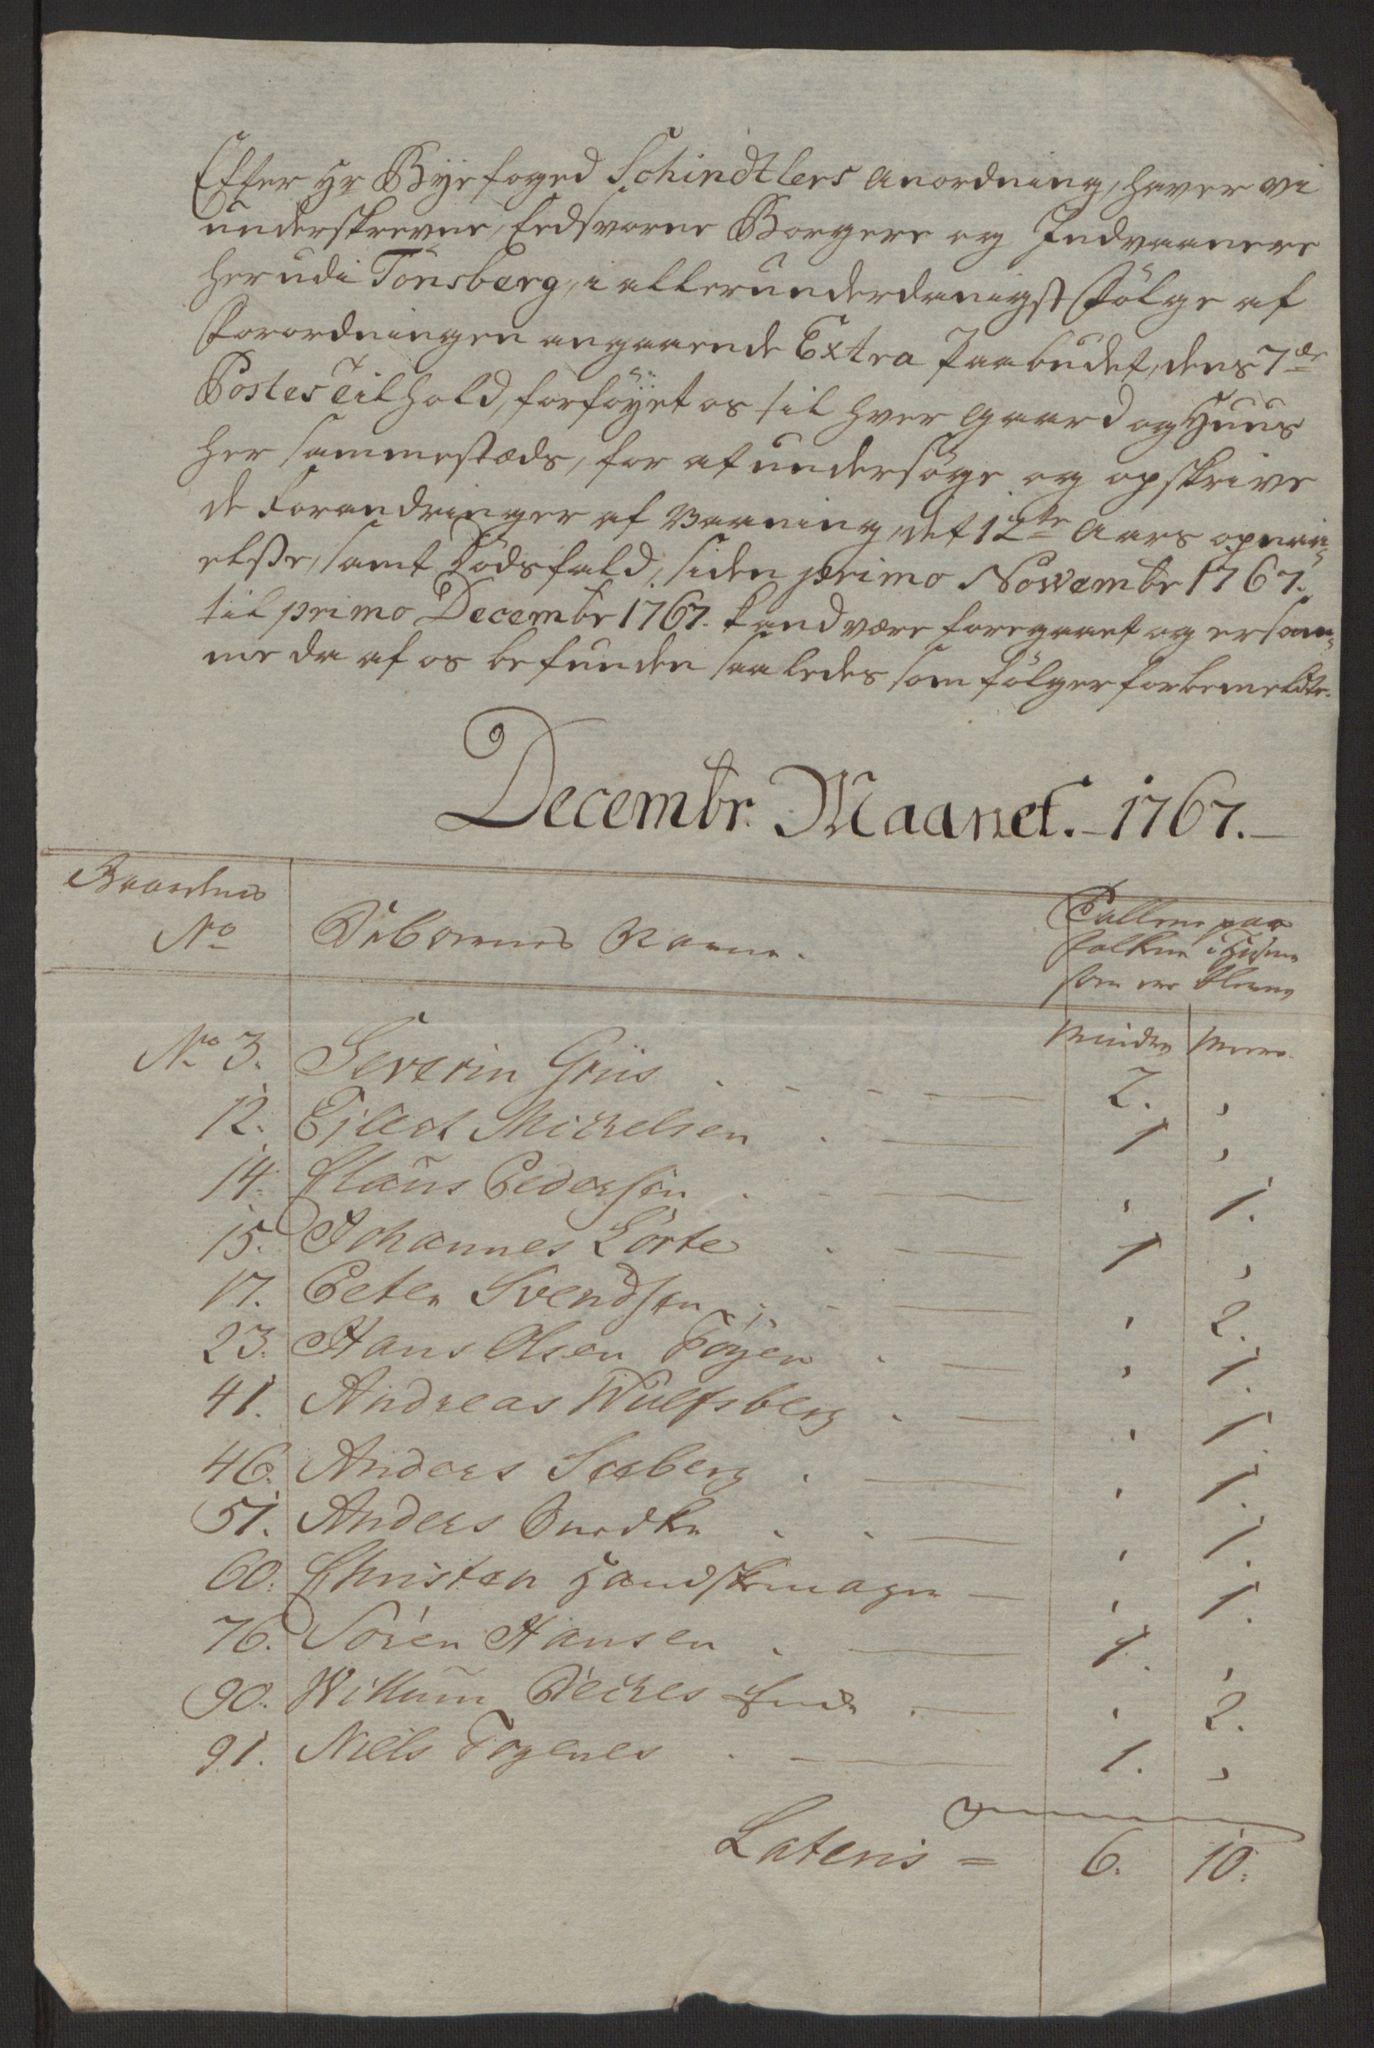 Efter Hr Byefoged Schindtlers Anordning, haver vi
underskrevne, Eedsvorne Borgere og Indvaanere
her udi Tönsberg, i allerunderdanigst Fölge af
Forordningen angaaende Extra Paabudet, dens 7de
Postes Tilhold, forföyet os til hver Gaard og Huus
her sammestæds, for at undersöge og opskrive
de Forandringer af Vaaning, det 12te Aars opnaa-
else, samt Dödsfald, siden primo Novembr 1767.
til primo Decembr 1767. kand være foregaaet og er sam-
me da af os befunden saaledes som fölger for bemeldte.
Decembr. Maanet. 1767.
Gaardenes
No
Beboernes Navne.
Tallene paa
Folkene i Husene
som ere blevne
Mindre Meere.
No 3. Severin Griis 2. ,
12. Ejlert Michelsen 1 ,
14. Claus Pedersen , 1.
15. Johannes Lörte 1 ,
17. Peter Svendsen , 2.
23. Hans Olsen Föyen , 1.
41. Andreas Wulfsberg , 1.
46. Anders Seeberg , 1.
51. Anders , 1.
60. Christen Handskemager , 1.
76. Sören Hansen 1. ,
90. Willum Peiches Enke , 2.
91. Niels Fogenes 1. ,
Lateris = 6. 10.